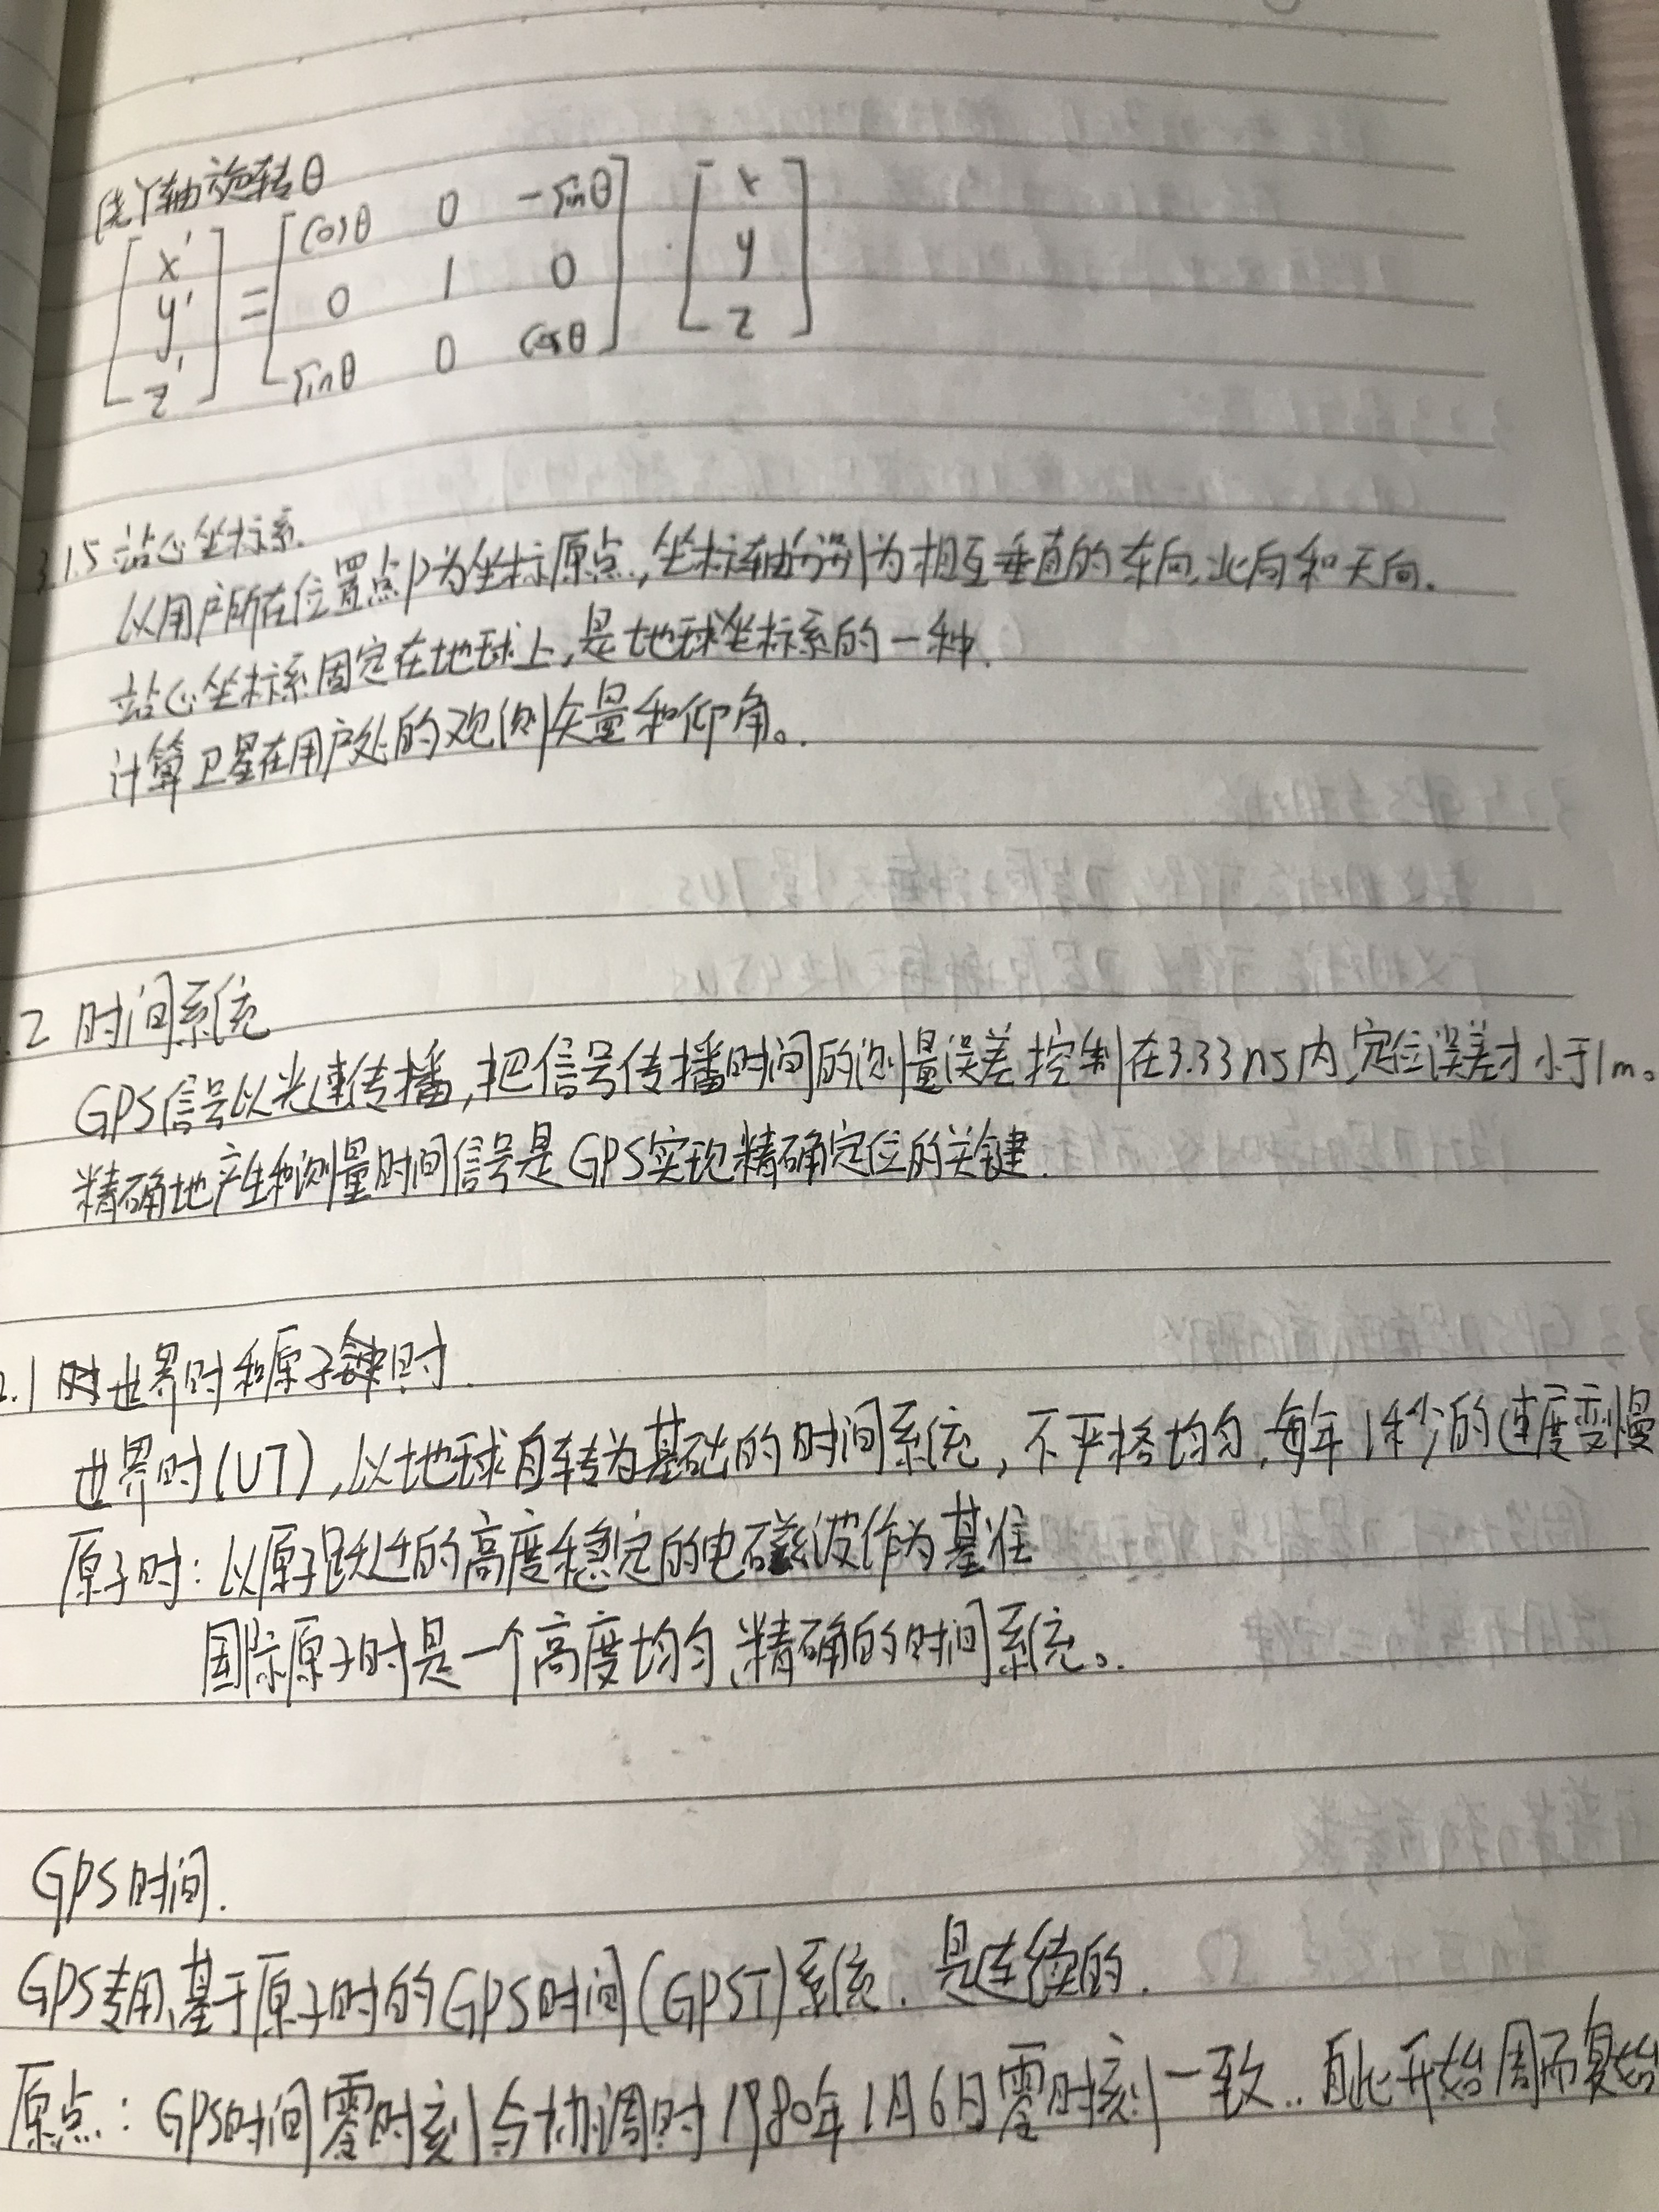 绕Y轴旋转θ
[x' y' z'] = [cosθ 0 -sinθ; 0 1 0; sinθ 0 cosθ] · [x y z]
3.1.5 站心坐标系.
以用户所在位置点P为坐标原点,坐标轴分别为相互垂直的东向、北向和天向.
站心坐标系固定在地球上,是地球坐标系的一种.
计算卫星在用户处的观测矢量和仰角。
.2 时间系统
GPS信号以光速传播,把信号传播时间的测量误差控制在3.33ns内,定位误差才小于1m。
精确地产生和测量时间信号是GPS实现精确定位的关键.
2.1 世界时和原子时.
世界时(UT),以地球自转为基础的时间系统,不严格均匀,每年1秒的速度变慢
原子时:以原子跃迁的高度稳定的电磁波作为基准
国际原子时是一个高度均匀、精确的时间系统。
GPS时间.
GPS专用、基于原子时的GPS时间(GPST)系统.是连续的.
原点:GPS时间零时刻与协调时1980年1月6日零时刻一致..自此开始周而复始